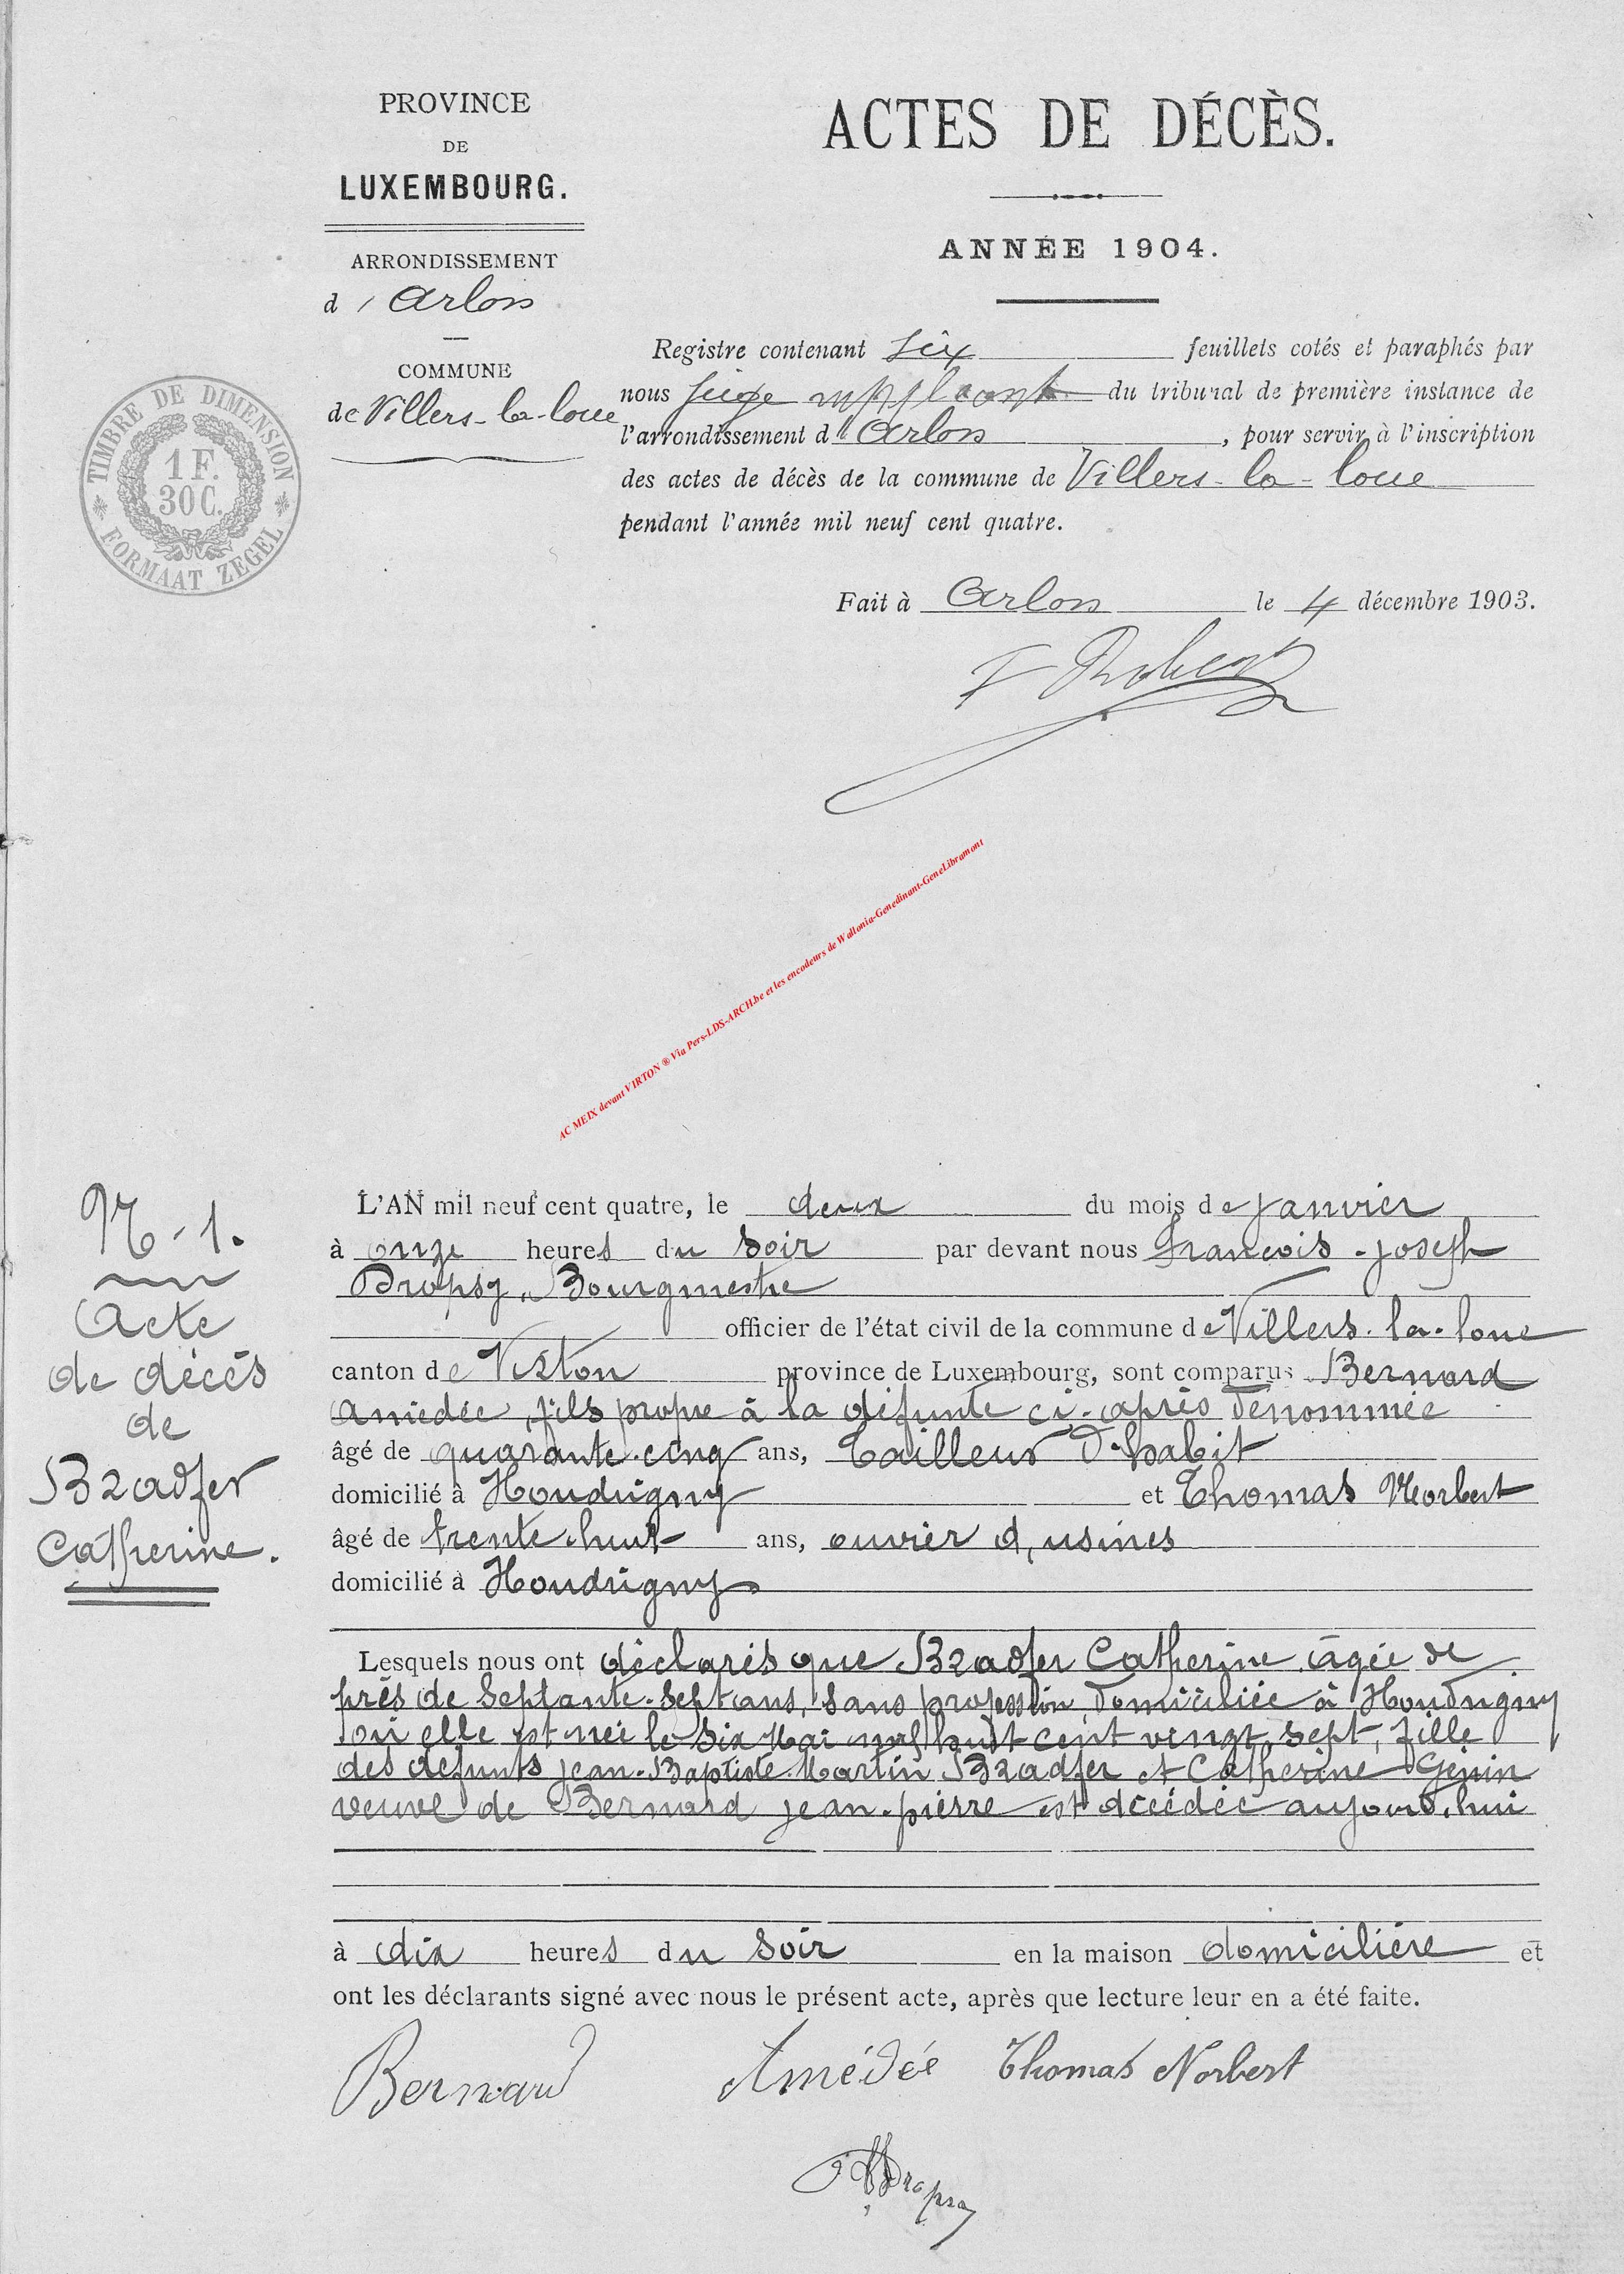 PROVINCE
DE
LUXEMBOURG.
ARRONDISSEMENT
d'Arlon
COMMUNE
de Villers-la-loue
TIMBRE DE DIMENSION
1 F.
30 C.
FORMAAT ZEGEL
ACTES DE DÉCÈS.
ANNÉE 1904.
Registre contenant six feuillets cotés et paraphés par
nous Juge suppléant du tribunal de première instance de
l'arrondissement d'Arlon, pour servir à l'inscription
des actes de décès de la commune de Villers-la-loue
pendant l'année mil neuf cent quatre.
Fait à Arlon le 4 décembre 1903.
AC MEIX devant VIRTON ® Via Pers-LDS-ARCH.be et les encodeurs de Wallonia-Genedinant-GeneLibramont
N-1.
Acte
de décès
de
Bradfer
Catherine.
L'AN mil neuf cent quatre, le deux du mois de janvier
à onze heures du soir par devant nous François-joseph
Dropsy, Bourgmestre
officier de l'état civil de la commune de Villers-la-loue
canton de Virton province de Luxembourg, sont comparus Bernard
Amédée, fils propre à la défunte ci-après dénommée
âgé de quarante-cinq ans, Tailleur d'habit
domicilié à Houdrigny et Thomas Norbert
âgé de trente-huit ans, ouvrier d'usines
domicilié à Houdrigny
Lesquels nous ont déclarés que Bradfer Catherine, âgée de
près de septante-sept ans, sans profession, domiciliée à Houdrigny
où elle est née le six Mai mil huit cent vingt sept, fille
des défunts jean-Baptiste-Martin Bradfer et Catherine Génin
veuve de Bernard jean-pierre est décédée aujourd'hui
à dix heures du soir en la maison domicilière et
ont les déclarants signé avec nous le présent acte, après que lecture leur en a été faite.
Bernard Amédée Thomas Norbert
Dropsy